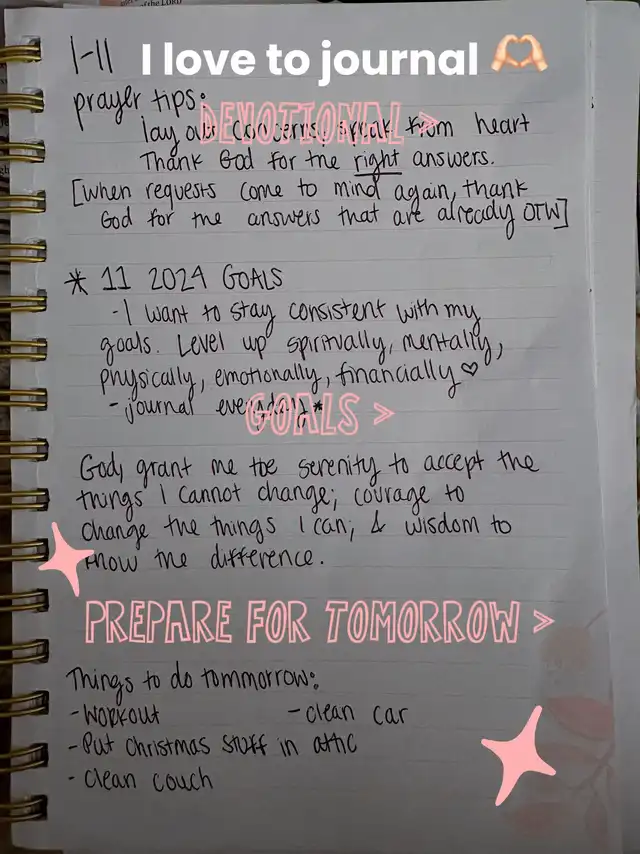 of the LORD
1-11
I love to journal 🫶🏼
prayer tips:
DEVOTIONAL >
lay out concerns, speak from heart
Thank God for the right answers.
[when requests come to mind again, thank
God for the answers that are already OTW]
* 11 2024 GOALS
- I want to stay consistent with my
goals. Level up spiritually, mentally,
physically, emotionally, financially ♡
- journal everyday *
GOALS >
God, grant me the serenity to accept the
things I cannot change; courage to
change the things I can; & wisdom to
know the difference.
PREPARE FOR TOMORROW >
Things to do tommorrow:
- WORKOUT - clean car
- Put Christmas stuff in attic
- clean couch